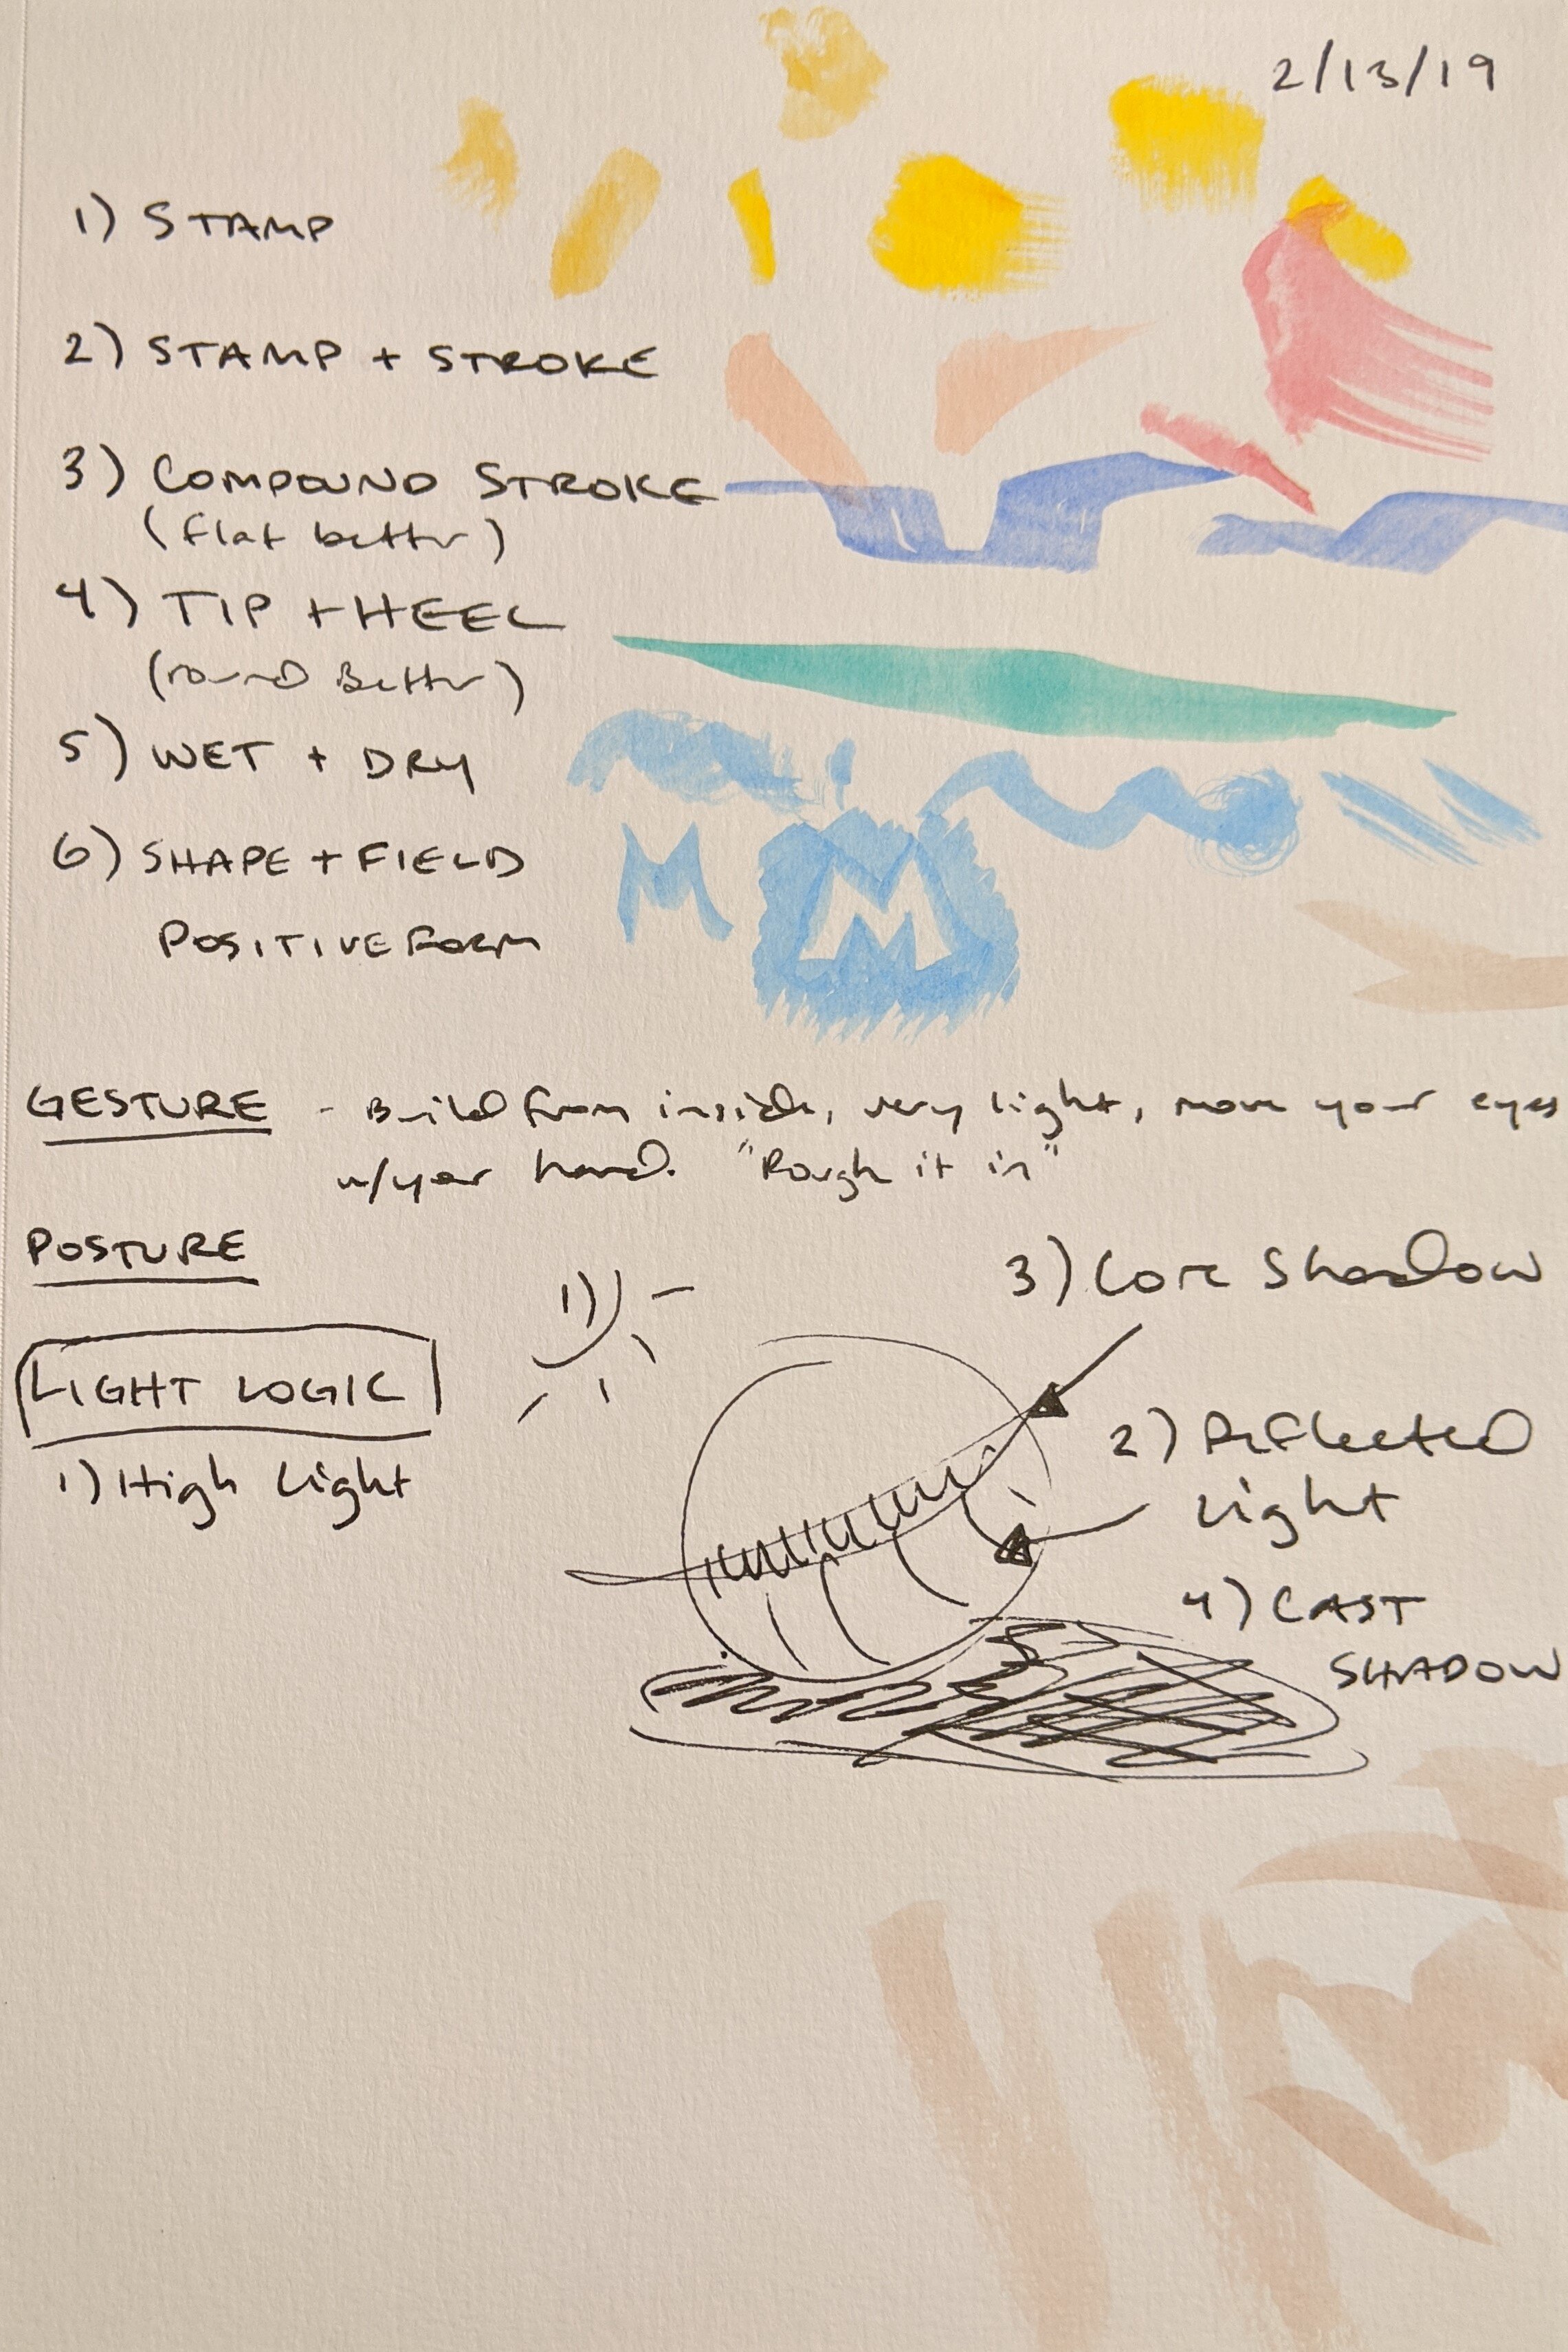 2/13/19
1) STAMP
2) STAMP + STROKE
3) COMPOUND STROKE
(flat better)
4) TIP + HEEL
(round Better)
5) WET + DRY
6) SHAPE + FIELD
POSITIVE FORM
M M
GESTURE - Build from inside, very light, move your eyes
w/your hand. "Rough it in"
POSTURE
1)
3) Core Shadow
LIGHT LOGIC
1) High Light
2) Reflected
Light
4) CAST
SHADOW